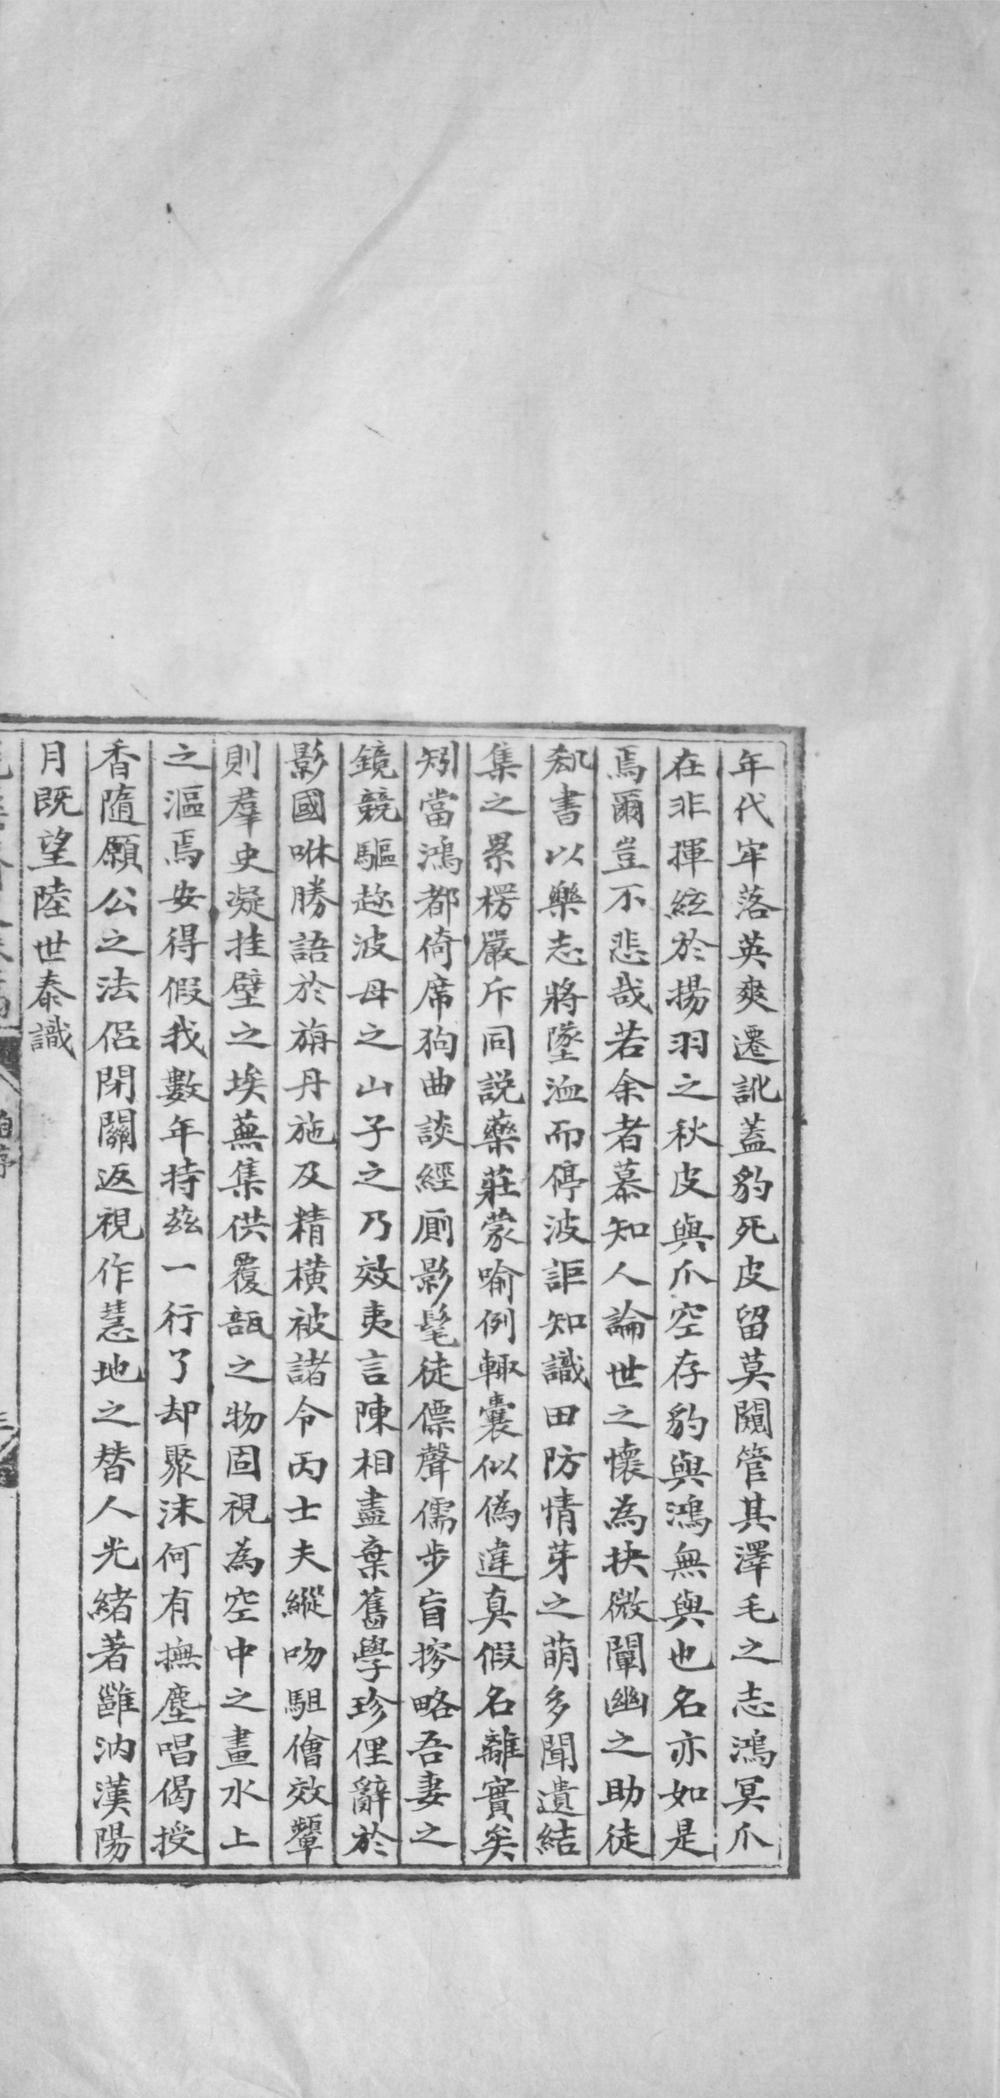 年代牢落英爽遷訛蓋豹死皮留莫闚管其澤毛之志鴻冥爪
在非揮絃於揚羽之秋皮與爪空存豹與鴻無與也名亦如是
焉爾豈不悲哉若余者慕知人論世之懷為抉微闡幽之助徒
剏書以樂志將墜洫而停波詎知識田防情芽之萌多聞遺結
集之累楞嚴斥同說藥莊蒙喻例輒囊似偽違真假名離實矣
矧當鴻都倚席狗曲談經廁影髦徒僄聲儒步盲摻略吾妻之
鏡競驅趂波母之山子之乃效夷言陳相盡棄舊學珍俚辭於
影國咻勝語於旃丹施及精橫被諸令丙士夫縱吻駔儈效顰
則羣史凝挂壁之埃蕪集供覆瓿之物固視為空中之畫水上
之漚焉安得假我數年持茲一行了却聚沫何有撫塵唱偈授
香隨願公之法侶閉關返視作慧地之替人光緒著雝汭漢陽
月既望陸世泰識